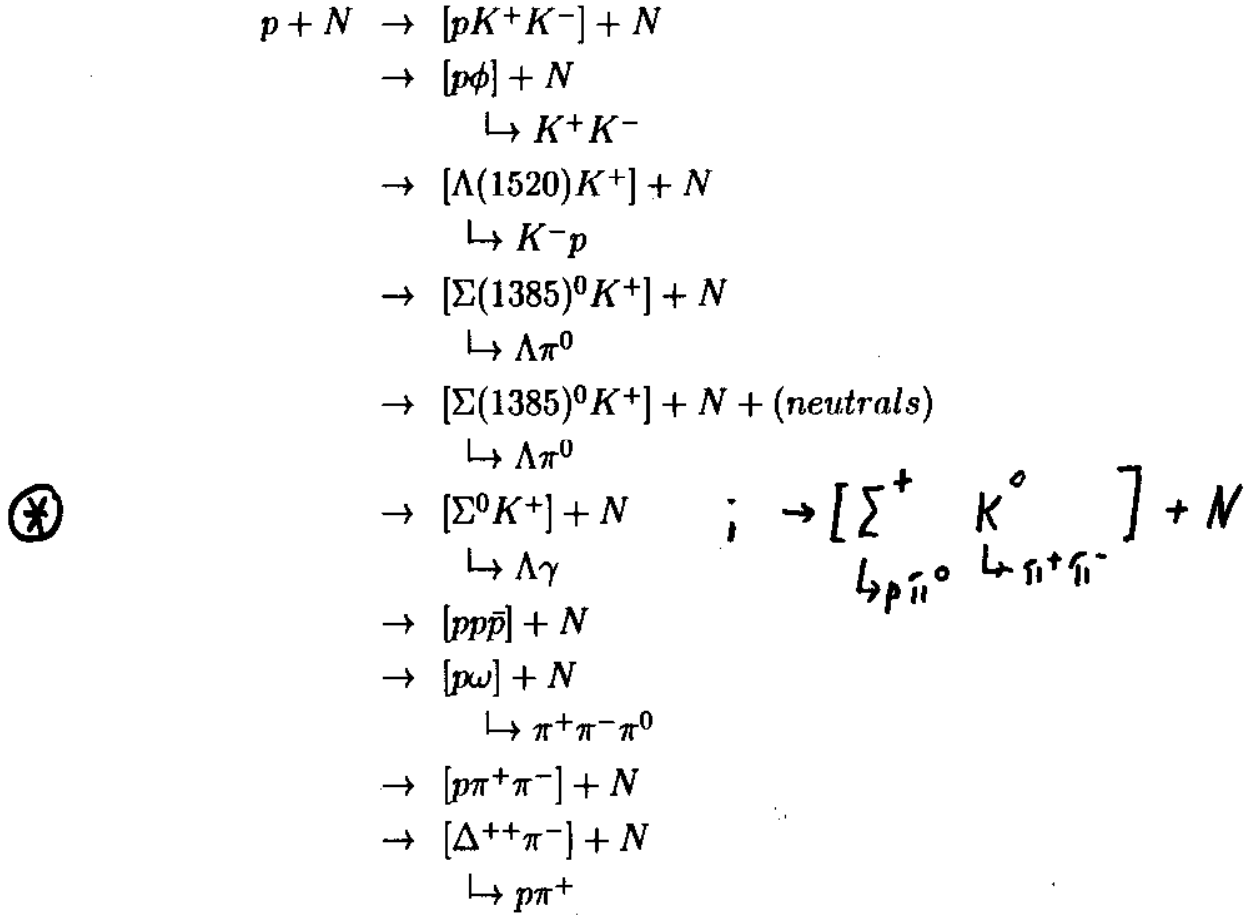 p + N → [pK⁺K⁻] + N
→ [pϕ] + N
↳ K⁺K⁻
→ [Λ(1520)K⁺] + N
↳ K⁻p
→ [Σ(1385)⁰K⁺] + N
↳ Λπ⁰
→ [Σ(1385)⁰K⁺] + N + (neutrals)
↳ Λπ⁰
⊛ → [Σ⁰K⁺] + N ; → [Σ⁺ K⁰] + N
↳ Λγ ↳ pπ⁰ ↳ π⁺π⁻
→ [ppp̄] + N
→ [pω] + N
↳ π⁺π⁻π⁰
→ [pπ⁺π⁻] + N
→ [Δ⁺⁺π⁻] + N
↳ pπ⁺